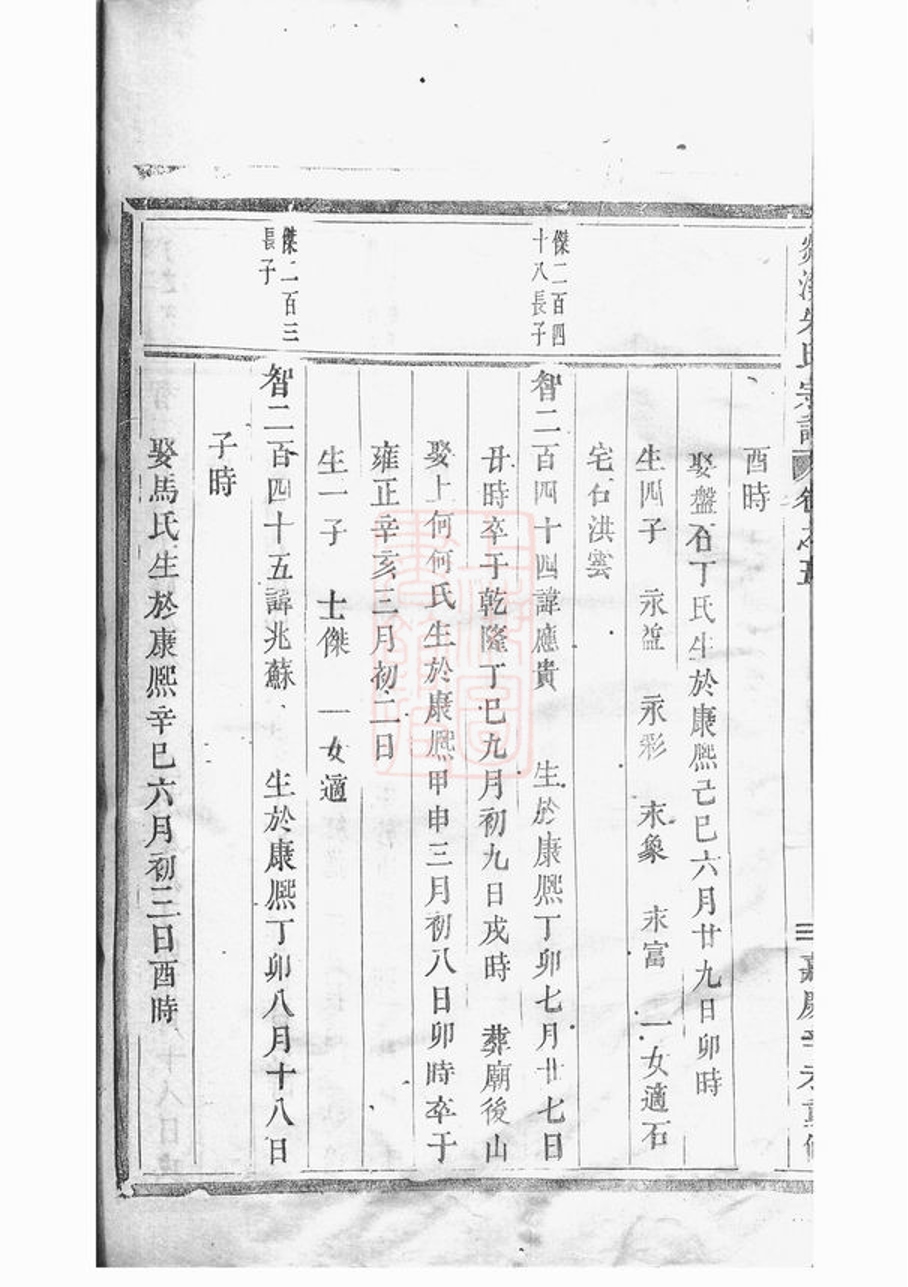 朱氏宗譜 卷之五 三 嘉慶 重修
酉時
娶盤石丁氏生於康熈己巳六月廿九日卯時
生四子 永益 永彩 永象 永富 一女適石
宅石洪雲
傑二百四
十八長子
智二百四十四諱應貴 生於康熈丁卯七月廿七日
丑時卒于乾隆丁巳九月初九日戌時 葬廟後山
娶上何何氏生於康熈甲申三月初八日卯時卒于
雍正辛亥三月初二日
生一子 士傑 一女適
傑二百三
長子
智二百四十五諱兆蘇 生於康熈丁卯八月十八日
子時
娶馬氏生於康熈辛巳六月初三日酉時